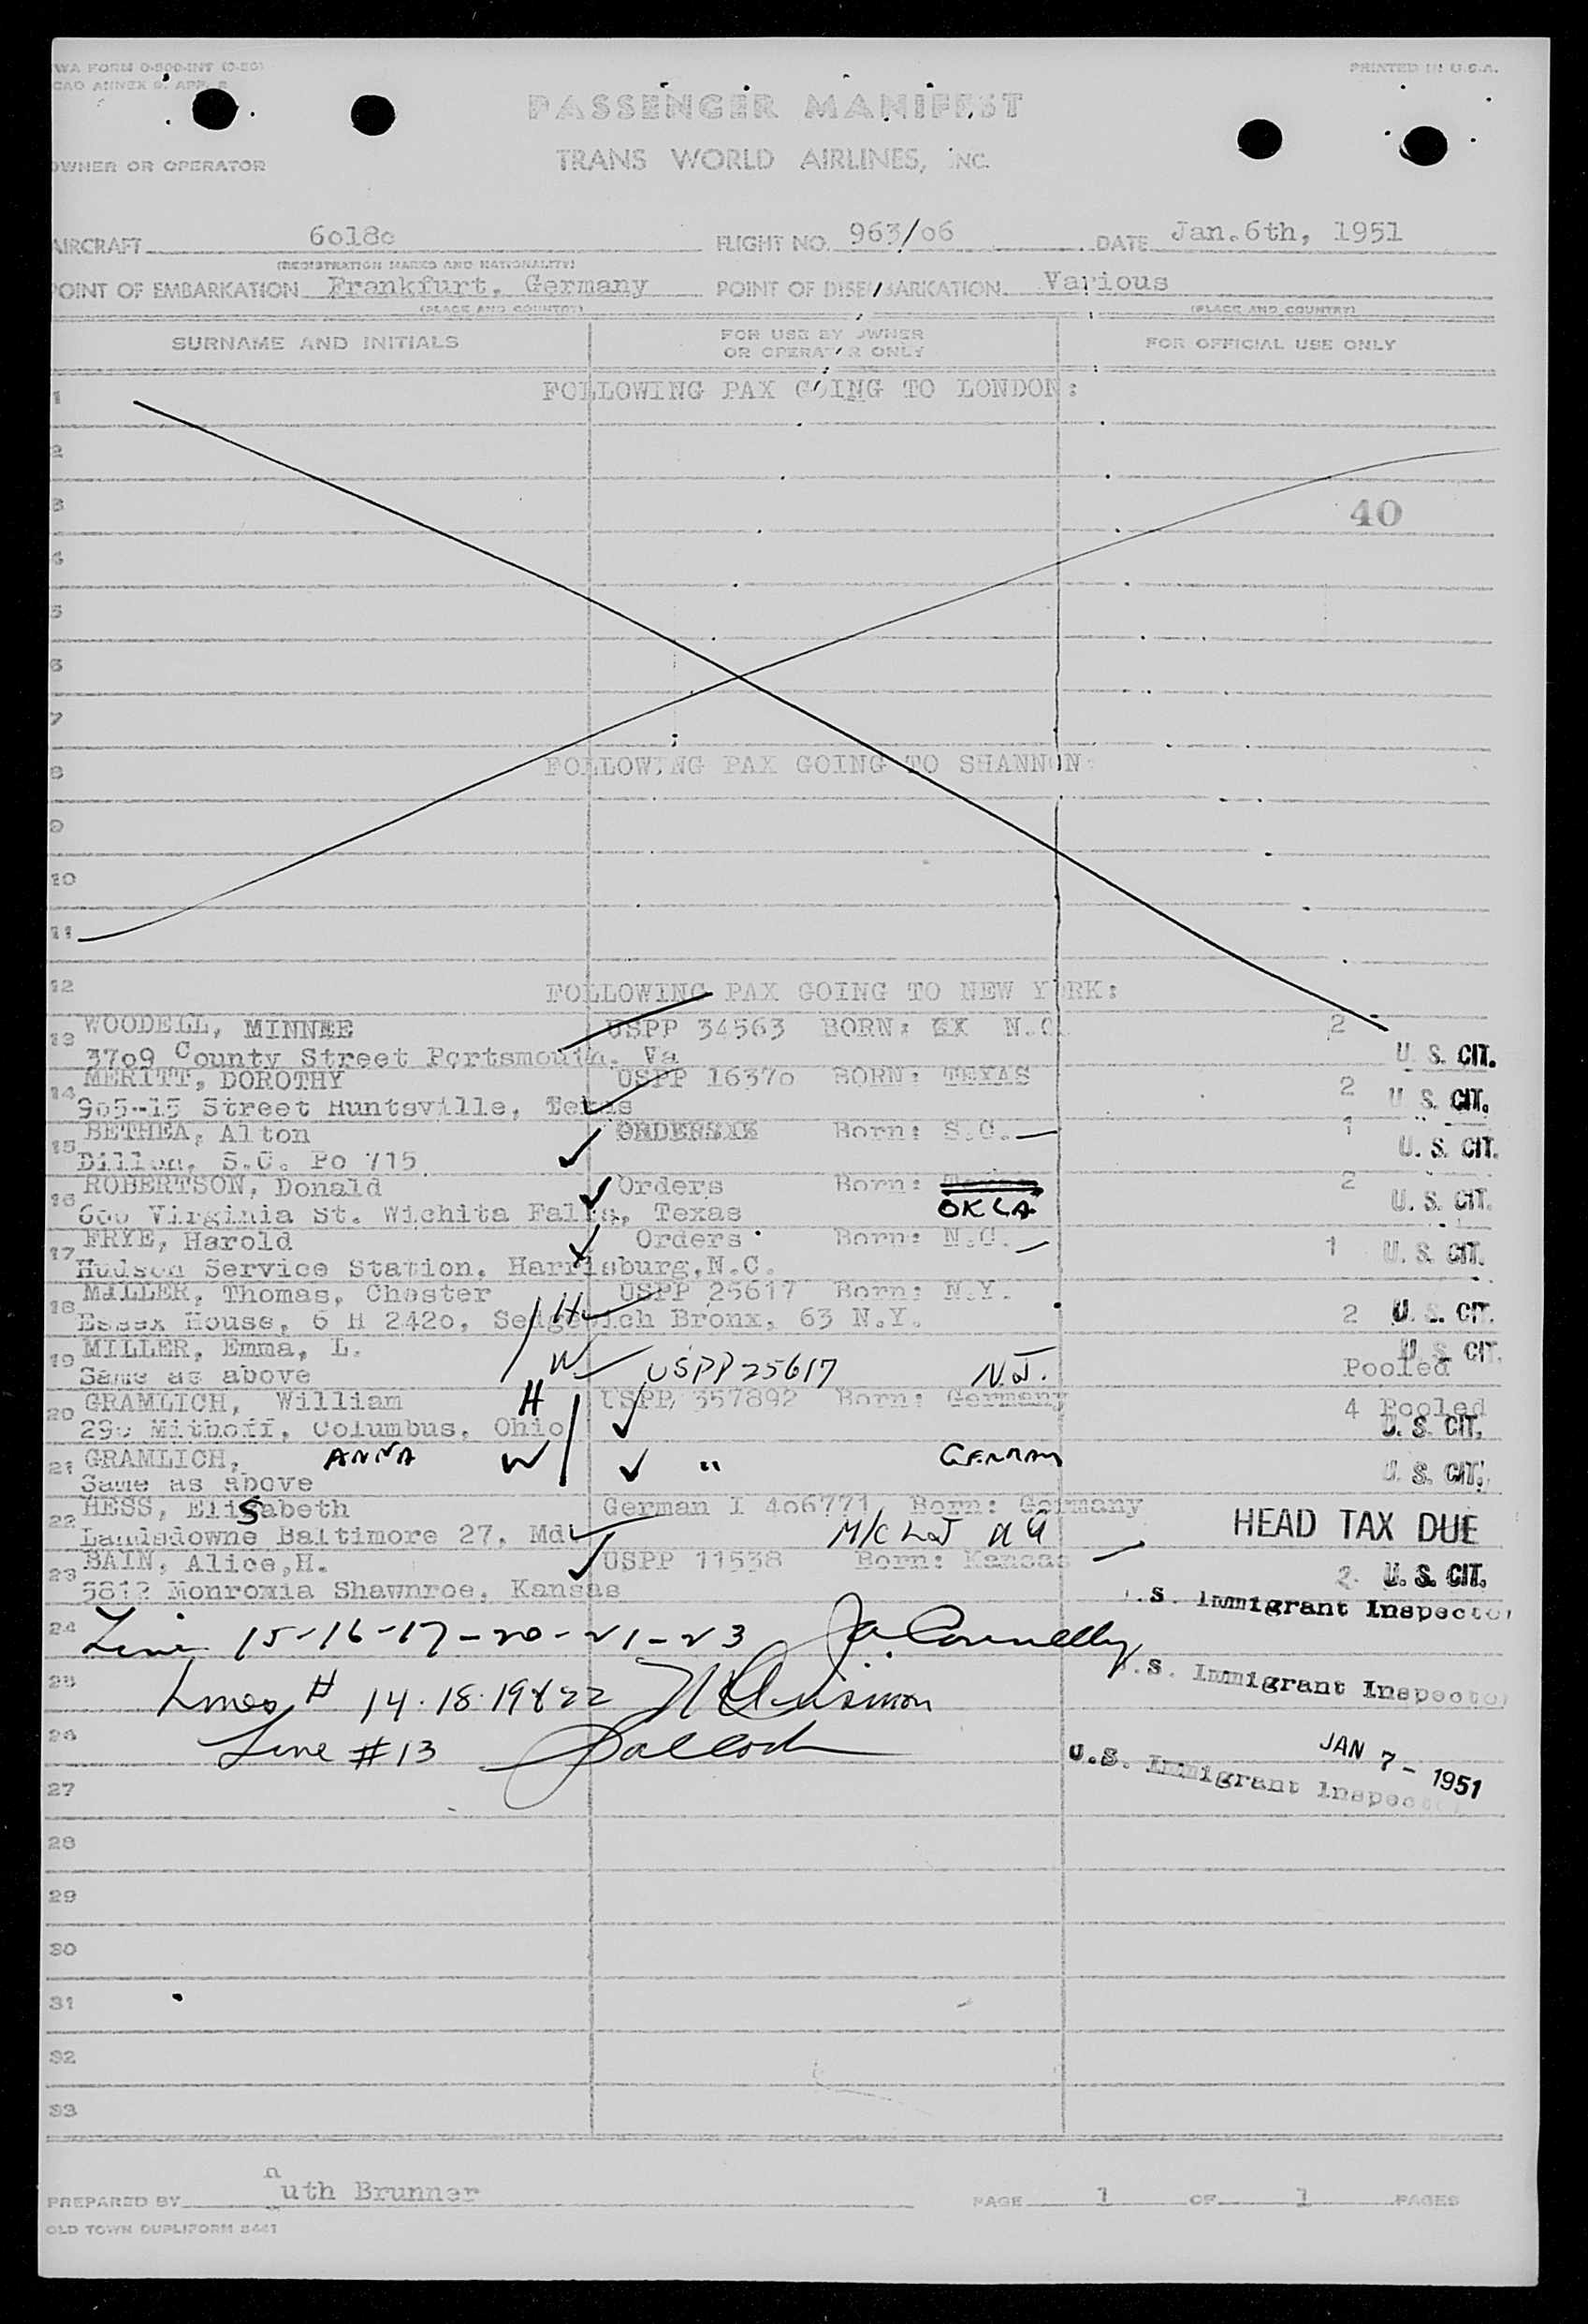 WA FORM 0-500-INT
CAO ANNEX 9, APP.
PRINTED IN U.S.A.
PASSENGER MANIFEST
OWNER OR OPERATOR
TRANS WORLD AIRLINES, INC.
AIRCRAFT 6018c FLIGHT NO. 963/06 DATE Jan.6th, 1951
(REGISTRATION MARKS AND NATIONALITY)
POINT OF EMBARKATION Frankfurt, Germany POINT OF DISEMBARKATION Various
(PLACE AND COUNTRY) (PLACE AND COUNTRY)
SURNAME AND INITIALS FOR USE BY OWNER OR OPERATOR ONLY FOR OFFICIAL USE ONLY
1 FOLLOWING PAX GOING TO LONDON:
2
3 40
4
5
6
7
8 FOLLOWING PAX GOING TO SHANNON:
9
10
11
12 FOLLOWING PAX GOING TO NEW YORK:
13 WOODELL, MINNEE USPP 34563 BORN: N.C. 2
3709 County Street Portsmouth, Va U. S. CIT.
14 MERITT, DOROTHY USPP 1637o BORN: TEXAS 2
905-15 Street Huntsville, Texas U. S. CIT.
15 BETHEA, Alton Born: S.C. 1
Dillon, S.C. Po 715 U. S. CIT.
16 ROBERTSON, Donald Orders Born: Texas 2
600 Virginia St. Wichita Falls, Texas OKLA U. S. CIT.
17 FRYE, Harold Orders Born: N.C. 1 U. S. CIT.
Hudson Service Station, Harrisburg,N.C.
18 MILLER, Thomas, Chester H USPP 25617 Born: N.Y.
Essex House, 6 H 242o, Sedgewich Bronx, 63 N.Y. 2 U. S. CIT.
19 MILLER, Emma, L. U. S. CIT.
Same as above W USPP 25617 N.J. Pooled
20 GRAMLICH, William H USPP 357892 Born: Germany 4 Pooled
290 Mithoff, Columbus, Ohio U. S. CIT.
21 GRAMLICH, ANNA W " GERMANY U. S. CIT.
Same as above
22 HESS, Elisabeth German I 406771 Born: Germany
Landsdowne Baltimore 27, Md HEAD TAX DUE
23 BAIN, Alice,H. USPP 11538 Born: Kansas
5812 Monromia Shawnroe, Kansas 2 U. S. CIT.
U.S. Immigrant Inspector
24 Line 15-16-17-20-21-23 Ja Connelly
U.S. Immigrant Inspector
25 Lines # 14.18.19&22
26 Line #13
JAN 7 - 1951
U.S. Immigrant Inspector
27
28
29
30
31
32
33
PREPARED BY Ruth Brunner PAGE 1 OF 1 PAGES
OLD TOWN DUPLIFORM 8441